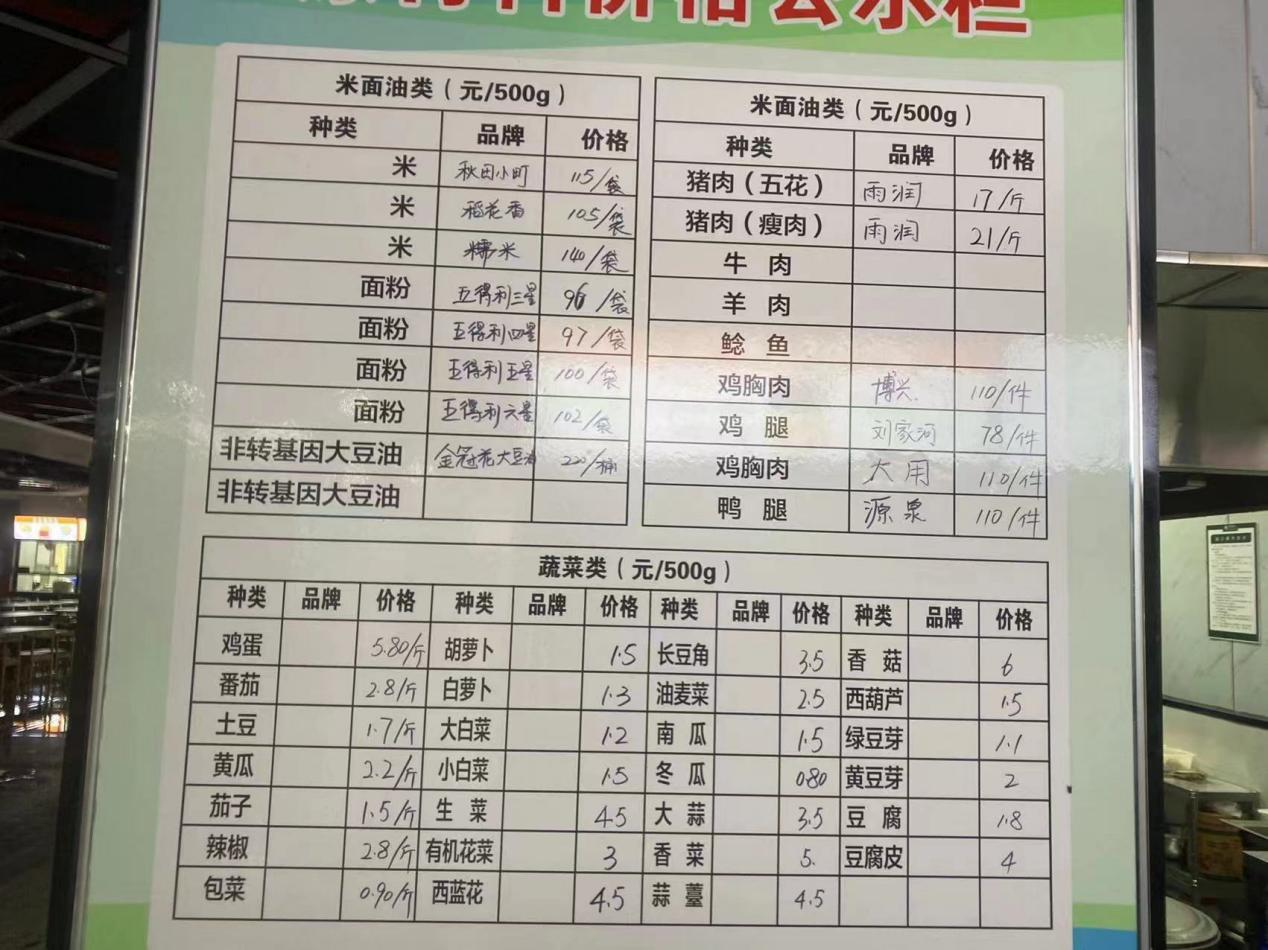 材料价格公示栏
米面油类（元/500g）
种类 品牌 价格
米 秋田小町 115/袋
米 稻花香 105/袋
米 糯米 140/袋
面粉 五得利三星 96/袋
面粉 五得利四星 97/袋
面粉 五得利五星 100/袋
面粉 五得利六星 102/袋
非转基因大豆油 金冠花大豆油 220/桶
非转基因大豆油
米面油类（元/500g）
种类 品牌 价格
猪肉（五花） 雨润 17/斤
猪肉（瘦肉） 雨润 21/斤
牛肉
羊肉
鲶鱼
鸡胸肉 博兴. 110/件
鸡腿 刘家河 78/件
鸡胸肉 大用 110/件
鸭腿 源泉 110/件
蔬菜类（元/500g）
种类 品牌 价格 种类 品牌 价格 种类 品牌 价格 种类 品牌 价格
鸡蛋 5.80/斤 胡萝卜 1.5 长豆角 3.5 香菇 6
番茄 2.8/斤 白萝卜 1.3 油麦菜 2.5 西葫芦 1.5
土豆 1.7/斤 大白菜 1.2 南瓜 1.5 绿豆芽 1.1
黄瓜 2.2/斤 小白菜 1.5 冬瓜 0.80 黄豆芽 2
茄子 1.5/斤 生菜 4.5 大蒜 3.5 豆腐 1.8
辣椒 2.8/斤 有机花菜 3 香菜 5. 豆腐皮 4
包菜 0.90/斤 西蓝花 4.5 蒜薹 4.5